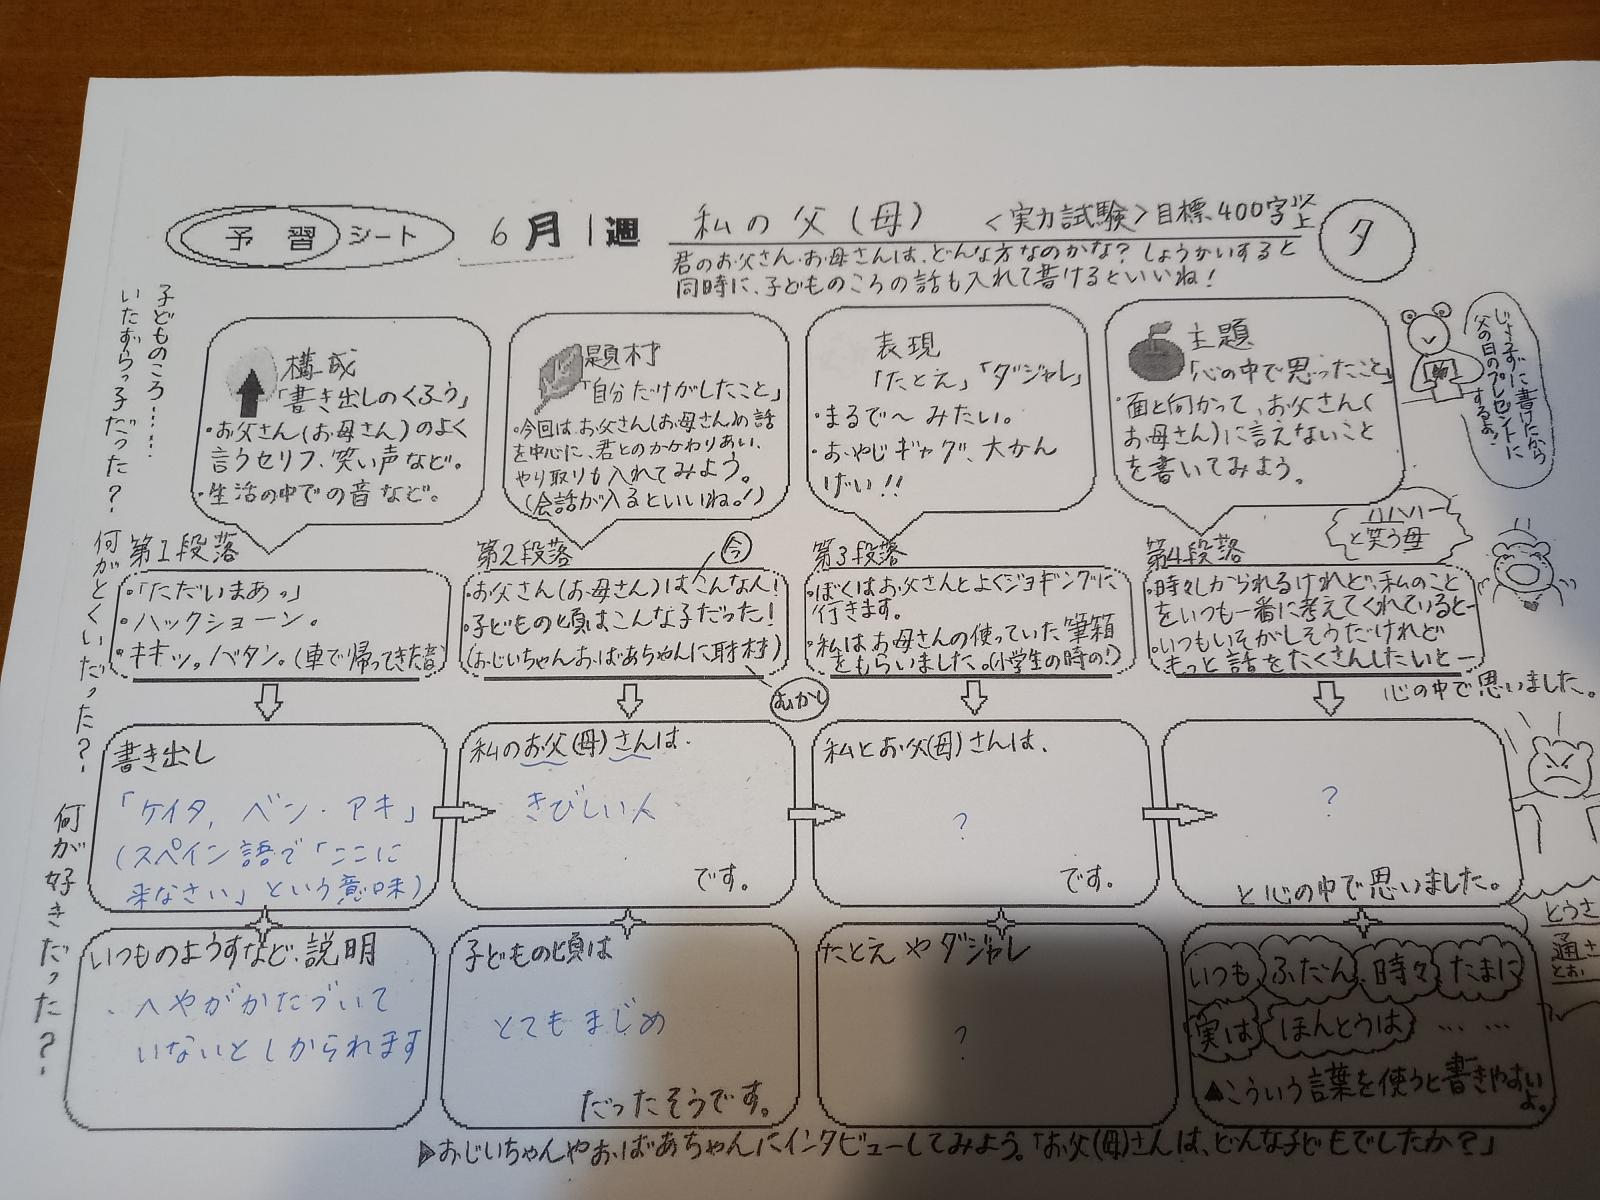 予習シート
6月1週
私の父(母)
<実力試験>目標、400字以上
タ
君のお父さん、お母さんは、どんな方なのかな？しょうかいすると
同時に、子どものころの話も入れて書けるといいね！
子どものころ……
いたずらっ子だった？
何がとくいだった？
何が好きだった？
構成
「書き出しのくふう」
・お父さん(お母さん)のよく
言うセリフ、笑い声など。
・生活の中での音など。
題材
「自分だけがしたこと」
・今回はお父さん(お母さん)の話
を中心に、君とのかかわりあい、
やり取りも入れてみよう。
(会話が入るといいね。！)
表現
「たとえ」「ダジャレ」
・まるで〜みたい。
・おやじギャグ、大かん
げい!!
主題
「心の中で思ったこと」
・面と向かって、お父さん(
お母さん)に言えないこと
を書いてみよう。
じょうずに書けたら
父の日のプレゼントに
するよ！
第1段落
・「ただいまあっ」
・ハックショーン。
・キキッ。バタン。(車で帰ってきた音)
第2段落
今
・お父さん(お母さん)はこんな人！
・子どもの頃はこんな子だった！
(おじいちゃんおばあちゃんに取材)
むかし
第3段落
・ぼくはお父さんとよくジョギングに
行きます。
・私はお母さんの使っていた筆箱
をもらいました。(小学生の時の！)
第4段落
ハハハー
と笑う母
・時々しかられるけれど、私のこと
をいつも一番に考えてくれていると―
・いつもいそがしそうだけれど
きっと話をたくさんしたいと―
心の中で思いました。
書き出し
「ケイタ, ベン・アキ」
(スペイン語で「ここに
来なさい」という意味)
私のお父(母)さんは、
きびしい人
です。
私とお父(母)さんは、
?
です。
?
と心の中で思いました。
いつものようすなど、説明
・へやがかたづいて
いないとしかられます
子どもの頃は
とてもまじめ
だったそうです。
たとえやダジャレ
?
いつも ふだん 時々 たまに
実は ほんとうは ……
▲こういう言葉を使うと書きやすい
よ。
▶おじいちゃんやおばあちゃんにインタビューしてみよう。「お父(母)さんは、どんな子どもでしたか？」